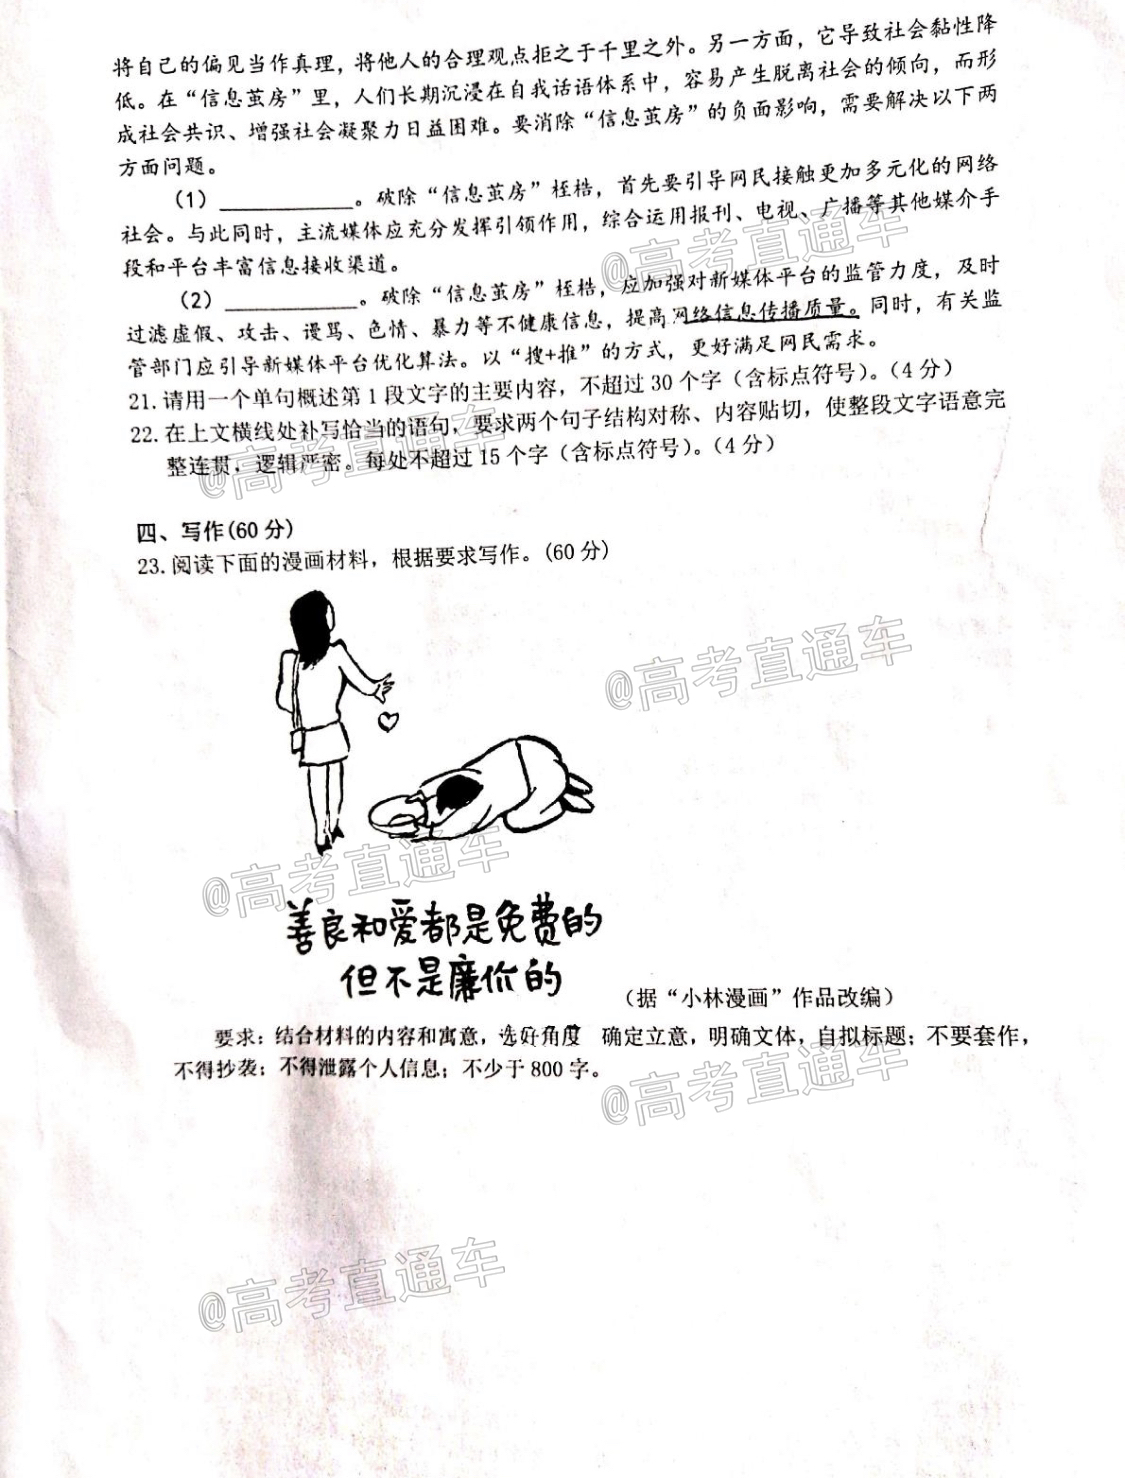 将自己的偏见当作真理，将他人的合理观点拒之于千里之外。另一方面，它导致社会黏性降
低。在“信息茧房”里，人们长期沉浸在自我话语体系中，容易产生脱离社会的倾向，而形
成社会共识、增强社会凝聚力日益困难。要消除“信息茧房”的负面影响，需要解决以下两
方面问题。
（1）____________。破除“信息茧房”桎梏，首先要引导网民接触更加多元化的网络
社会。与此同时，主流媒体应充分发挥引领作用，综合运用报刊、电视、广播等其他媒介手
段和平台丰富信息接收渠道。
（2）____________。破除“信息茧房”桎梏，应加强对新媒体平台的监管力度，及时
过滤虚假、攻击、谩骂、色情、暴力等不健康信息，提高网络信息传播质量。同时，有关监
管部门应引导新媒体平台优化算法。以“搜+推”的方式，更好满足网民需求。
21.请用一个单句概述第1段文字的主要内容，不超过30个字（含标点符号）。（4分）
22.在上文横线处补写恰当的语句，要求两个句子结构对称、内容贴切，使整段文字语意完
整连贯，逻辑严密。每处不超过15个字（含标点符号）。（4分）
四、写作(60分)
23.阅读下面的漫画材料，根据要求写作。(60分)
善良和爱都是免费的
但不是廉价的
（据“小林漫画”作品改编）
要求：结合材料的内容和寓意，选好角度 确定立意，明确文体，自拟标题；不要套作，
不得抄袭；不得泄露个人信息；不少于800字。
@高考直通车
@高考直通车
@高考直通车
@高考直通车
@高考直通车
@高考直通车